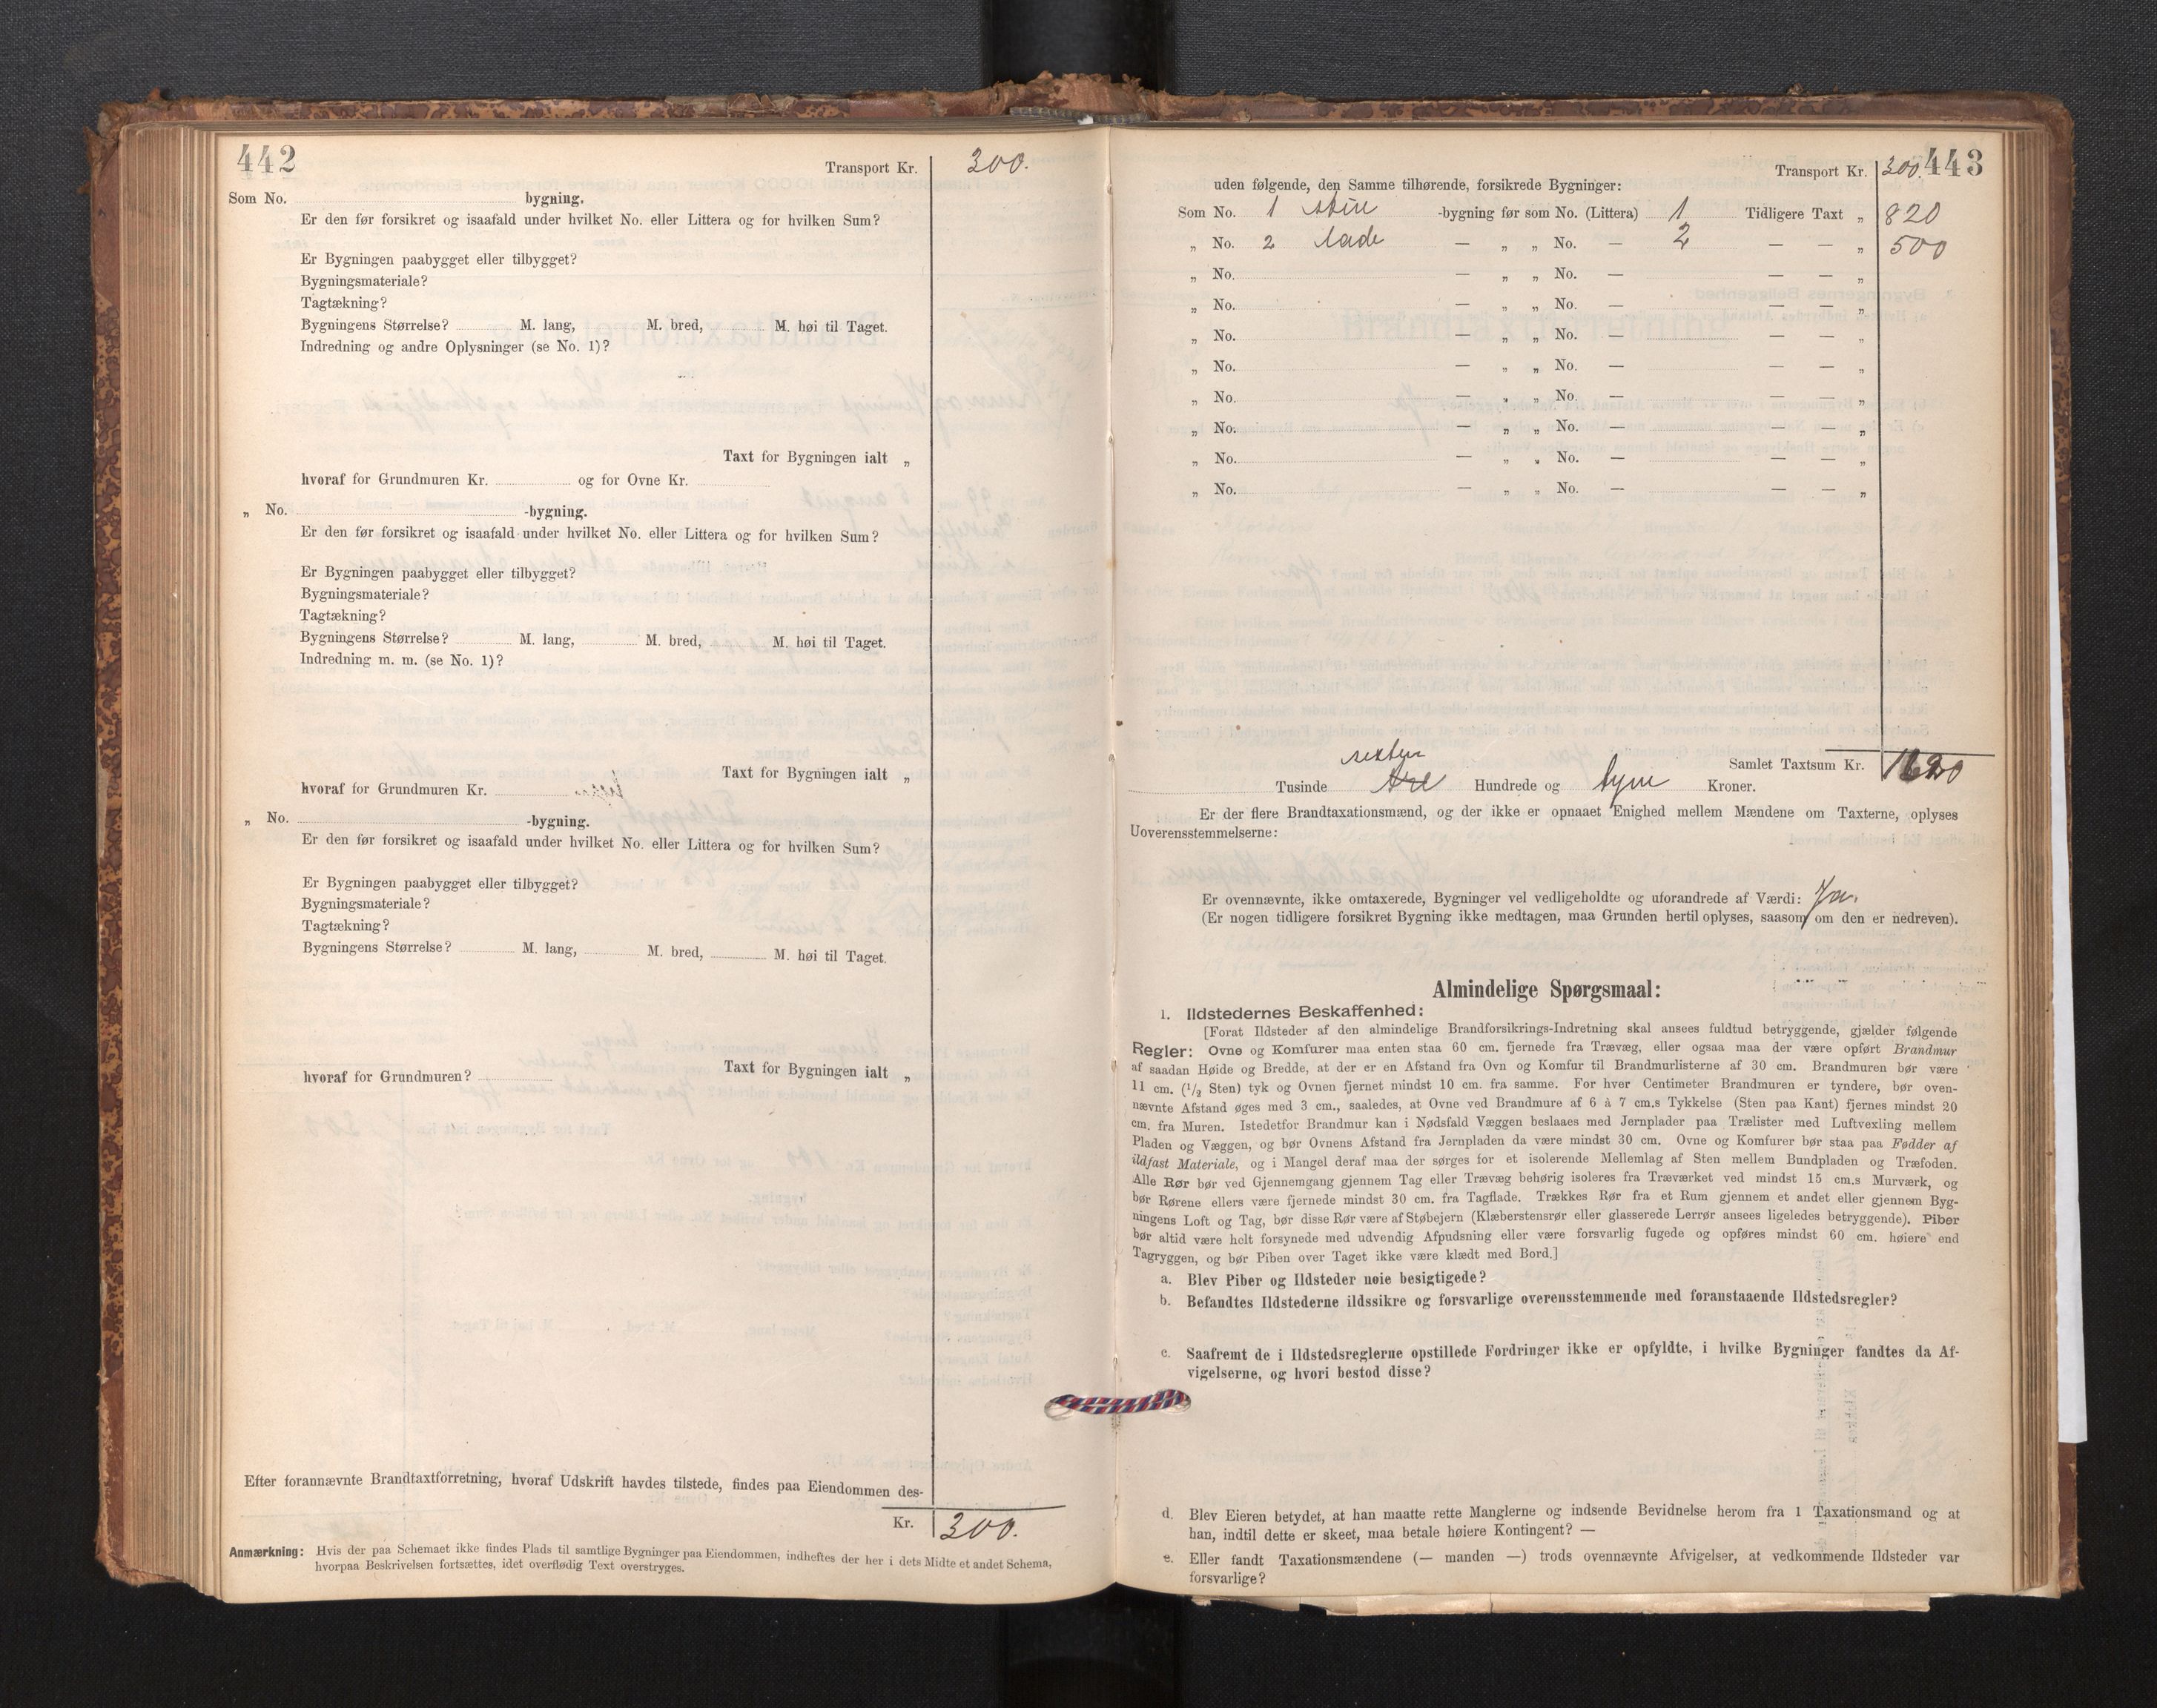 442
Transport Kr. 300.
Som No. bygning.
Er den før forsikret og isaafald under hvilket No. eller Littera og for hvilken Sum?
Er Bygningen paabygget eller tilbygget?
Bygningsmateriale?
Tagtækning?
Bygningens Størrelse? M. lang, M. bred, M. høi til Taget.
Indredning og andre Oplysninger (se No. 1)?
Taxt for Bygningen ialt „
hvoraf for Grundmuren Kr. og for Ovne Kr.
„ No. -bygning.
Er den før forsikret og isaafald under hvilket No. eller Littera og for hvilken Sum?
Er Bygningen paabygget eller tilbygget?
Bygningsmateriale?
Tagtækning?
Bygningens Størrelse? M. lang, M. bred, M. høi til Taget.
Indredning m. m. (se No. 1)?
Taxt for Bygningen ialt „
hvoraf for Grundmuren Kr.
„ No. -bygning.
Er den før forsikret og isaafald under hvilket No. eller Littera og for hvilken Sum?
Er Bygningen paabygget eller tilbygget?
Bygningsmateriale?
Tagtækning?
Bygningens Størrelse? M. lang, M. bred, M. høi til Taget.
Taxt for Bygningen ialt „
hvoraf for Grundmuren?
Efter forannævnte Brandtaxtforretning, hvoraf Udskrift havdes tilstede, findes paa Eiendommen des-
Kr. 300.
Anmærkning: Hvis der paa Schemaet ikke findes Plads til samtlige Bygninger paa Eiendommen, indheftes der her i dets Midte et andet Schema,
hvorpaa Beskrivelsen fortsættes, idet overflødig Text overstryges.
443
Transport Kr. 300.
uden følgende, den Samme tilhørende, forsikrede Bygninger:
Som No. 1 -bygning før som No. (Littera) 1 Tidligere Taxt „ 820
„ No. 2 lade — „ „ No. — 2 — — „ 500
„ No. — „ „ No. — — — „
„ No. — „ „ No. — — — „
„ No. — „ „ No. — — — „
„ No. — „ „ No. — — — „
„ No. — „ „ No. — — — „
„ No. — „ „ No. — — — „
„ No. — „ „ No. — — — „
„ No. — „ „ No. — — — „
Samlet Taxtsum Kr. 1620
sexten
Tusinde Hundrede og tyve Kroner.
Er der flere Brandtaxationsmænd, og der ikke er opnaaet Enighed mellem Mændene om Taxterne, oplyses
Uoverensstemmelserne:
Er ovennævnte, ikke omtaxerede, Bygninger vel vedligeholdte og uforandrede af Værdi: Ja.
(Er nogen tidligere forsikret Bygning ikke medtagen, maa Grunden hertil oplyses, saasom om den er nedreven).
Almindelige Spørgsmaal:
1. Ildstedernes Beskaffenhed:
[Forat Ildsteder af den almindelige Brandforsikrings-Indretning skal ansees fuldtud betryggende, gjælder følgende
Regler: Ovne og Komfurer maa enten staa 60 cm. fjernede fra Trævæg, eller ogsaa maa der være opført Brandmur
af saadan Høide og Bredde, at der er en Afstand fra Ovn og Komfur til Brandmurlisterne af 30 cm. Brandmuren bør være
11 cm. (1/2 Sten) tyk og Ovnen fjernet mindst 10 cm. fra samme. For hver Centimeter Brandmuren er tyndere, bør oven-
nævnte Afstand øges med 3 cm., saaledes, at Ovne ved Brandmure af 6 à 7 cm.s Tykkelse (Sten paa Kant) fjernes mindst 20
cm. fra Muren. Istedetfor Brandmur kan i Nødsfald Væggen beslaaes med Jernplader paa Trælister med Luftvexling mellem
Pladen og Væggen, og bør Ovnens Afstand fra Jernpladen da være mindst 30 cm. Ovne og Komfurer bør staa paa Fødder af
ildfast Materiale, og i Mangel deraf maa der sørges for et isolerende Mellemlag af Sten mellem Bundpladen og Træfoden.
Alle Rør bør ved Gjennemgang gjennem Tag eller Trævæg behørig isoleres fra Træværket ved mindst 15 cm.s Murværk, og
bør Rørene ellers være fjernede mindst 30 cm. fra Tagflade. Trækkes Rør fra et Rum gjennem et andet eller gjennem Byg-
ningens Loft og Tag, bør disse Rør være af Støbejern (Klæberstensrør eller glasserede Lerrør ansees ligeledes betryggende). Piber
bør altid være helt forsynede med udvendig Afpudsning eller være forsvarlig fugede og opføres mindst 60 cm. høiere end
Tagryggen, og bør Piben over Taget ikke være klædt med Bord.]
a. Blev Piber og Ildsteder nøie besigtigede?
b. Befandtes Ildstederne ildssikre og forsvarlige overensstemmende med foranstaaende Ildstedsregler?
c. Saafremt de i Ildstedsreglerne opstillede Fordringer ikke er opfyldte, i hvilke Bygninger fandtes da Af-
vigelserne, og hvori bestod disse?
d. Blev Eieren betydet, at han maatte rette Manglerne og indsende Bevidnelse herom fra 1 Taxationsmand og at
han, indtil dette er skeet, maa betale høiere Kontingent? —
e. Eller fandt Taxationsmændene (— manden —) trods ovennævnte Afvigelser, at vedkommende Ildsteder var
forsvarlige?